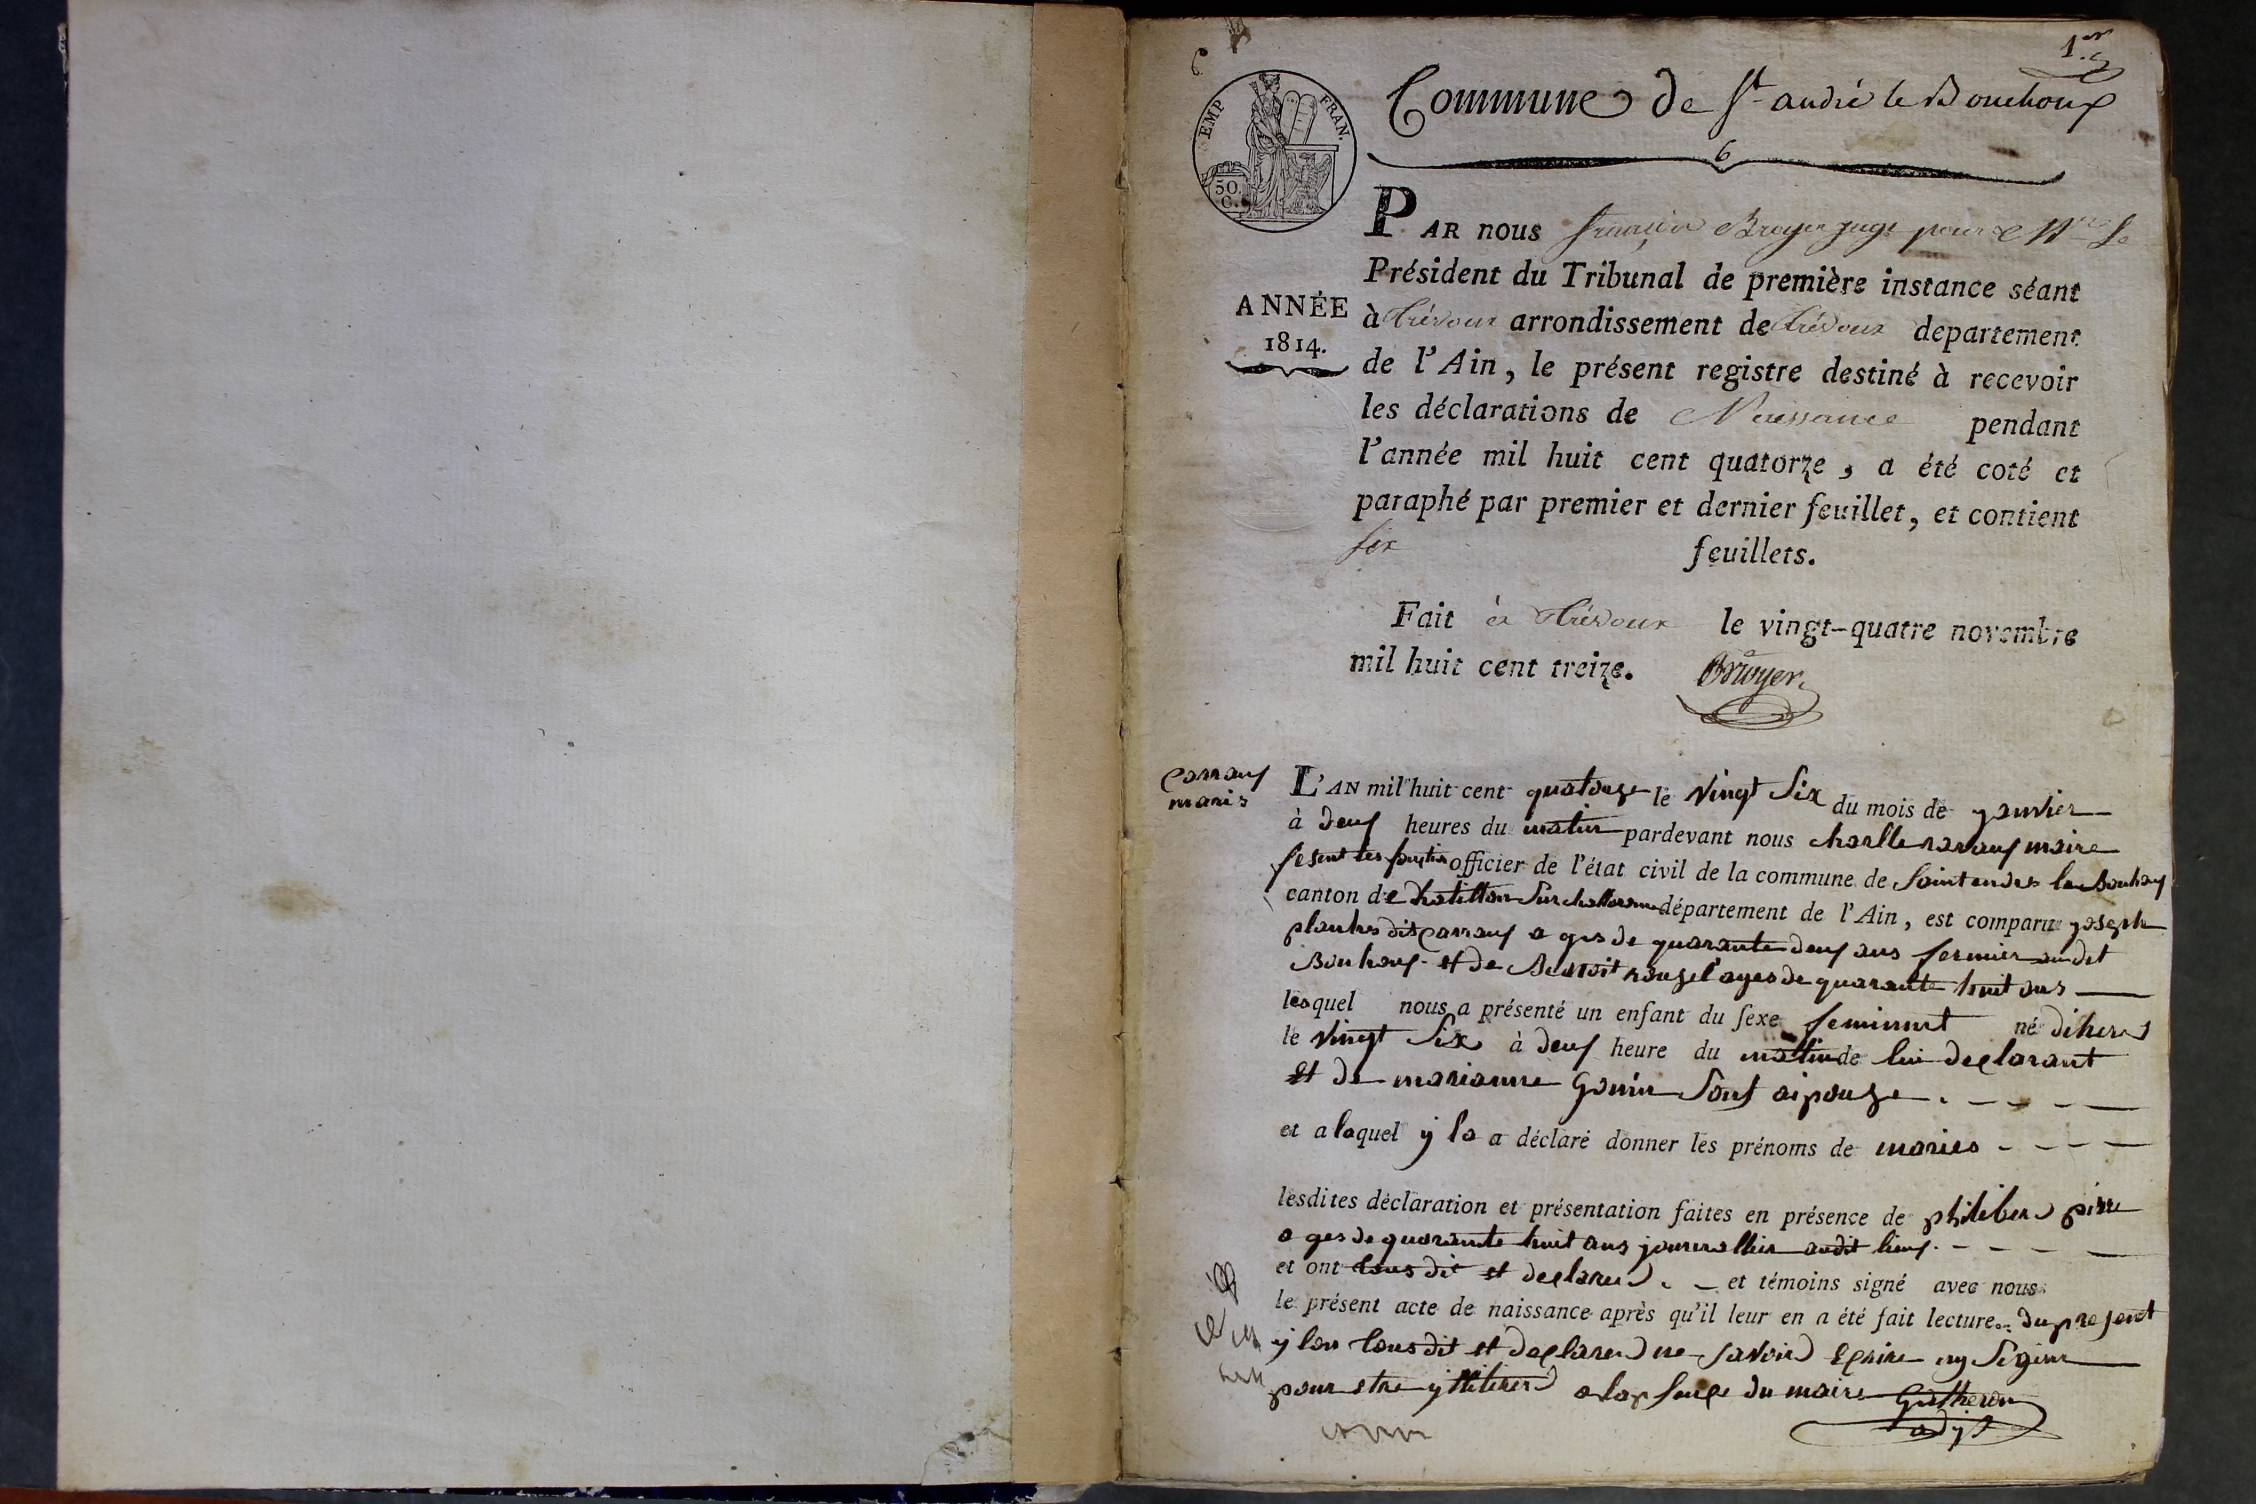 1.er
Commune de St andré le Bouchoux
6
EMP FRAN.
50
C.
PAR nous françois Bruyer juge pour Mr le
Président du Tribunal de première instance séant
ANNÉE
1814.
à Trévoux arrondissement de Trévoux departement
de l'Ain, le présent registre destiné à recevoir
les déclarations de Naissance pendant
l'année mil huit cent quatorze, a été coté et
paraphé par premier et dernier feuillet, et contient
six feuillets.
Fait à Trévoux le vingt-quatre novembre
mil huit cent treize. Bruyer
marie
L'AN mil huit cent quatorze le vingt Six du mois de yanvier
à deuf heures du matin pardevant nous charlle maire
officier de l'état civil de la commune de Saint andes le Bouhouf
canton de département de l'Ain, est comparu yoseph
dit a ges de quarante deuf ans fermier audit
Bouhouf et de Benoit ages de quarante huit ans
lesquel nous a présenté un enfant du sexe feminint né
le vingt Six à deuf heure du matin de lui declarant
et de marianne Gonin Sont aipouze
et a laquel y la a déclaré donner les prénoms de maries
lesdites déclaration et présentation faites en présence de philiber
a ges de quarante huit ans journallier audit lieuf
et ont tous dit et declarer et témoins signé avec nous
le présent acte de naissance après qu'il leur en a été fait lecture. du present
y lon tous dit et declarer ne savoir Ecrire ny Signer
pour etre du maire
adjt